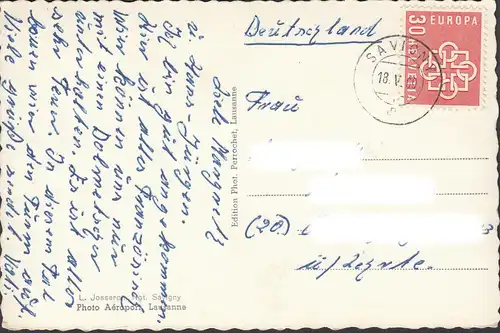 Deutschland
30
EUROPA
HELVETIA
SAVIGNY
18.V.
Liebe Margret
u. Hans-Jürgen.
Ich bin gut angekommen.
hier ist alles französisch
wir können uns nur
mit einen Dolmetscher
unterhalten. Es ist alles
sehr teuer. In diesem Tal
kann man den Turm seh.
Viele Grüße
Vati
Frau
(20.)
ü/Lehrte.
Edition Phot. Perrochet, Lausanne
L. Josseron, Not. Savigny
Photo Aéroport, Lausanne